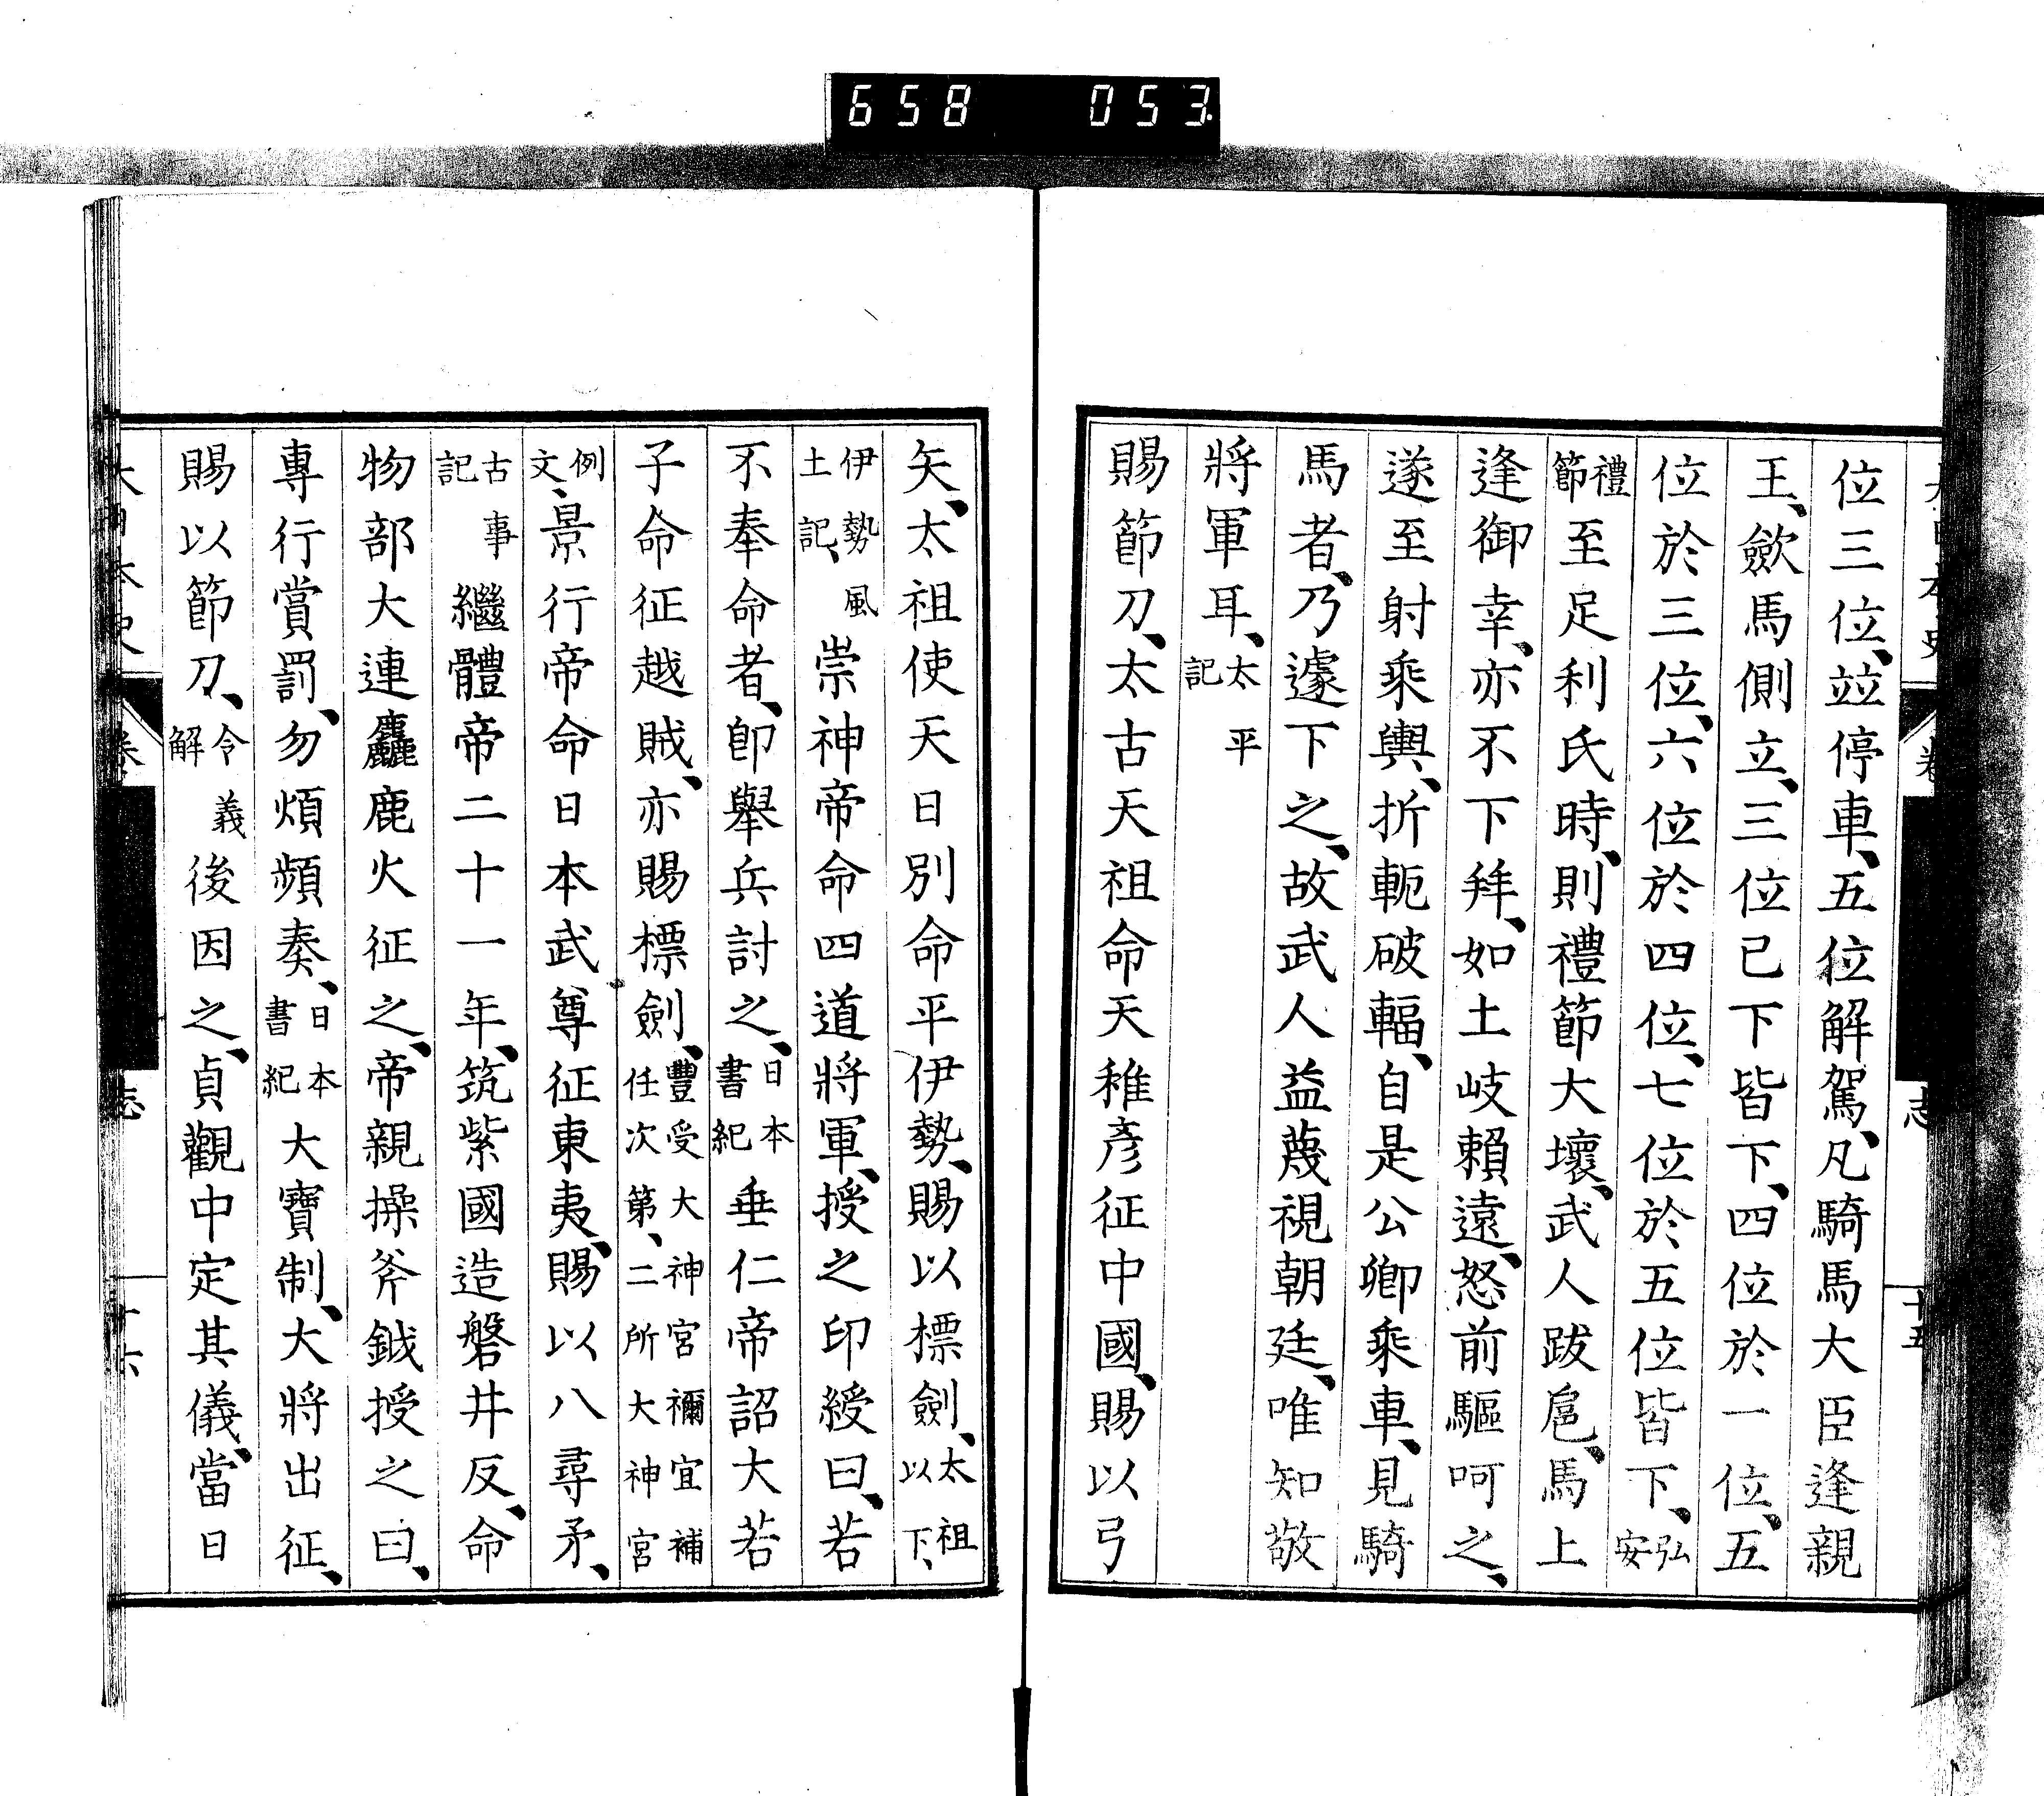 658 053
位三位、竝停車、五位解駕、凡騎馬大臣逢親
王、歛馬側立、三位已下皆下、四位於一位、五
位於三位、六位於四位、七位於五位皆下、弘安
禮節至足利氏時、則禮節大壞、武人跋扈、馬上
逢御幸、亦不下拜、如土岐賴遠、怒前驅呵之、
遂至射乘輿、折軛破輻、自是公卿乘車、見騎
馬者、乃遽下之、故武人益蔑視朝廷、唯知敬
將軍耳、太平記
賜節刀、太古天祖命天稚彥征中國、賜以弓
矢、太祖使天日別命平伊勢、賜以標劍、太祖以下、
伊勢風土記、崇神帝命四道將軍、授之印綬曰、若
不奉命者、卽舉兵討之、日本書紀垂仁帝詔大若
子命征越賊、亦賜標劍、豐受大神宮禰宜補任次第、二所大神宮
例文、景行帝命日本武尊征東夷、賜以八尋矛、
古事記繼體帝二十一年、筑紫國造磐井反、命
物部大連麤鹿火征之、帝親操斧鉞授之曰、
專行賞罰、勿煩頻奏、日本書紀大寶制、大將出征、
賜以節刀、令義解後因之、貞觀中定其儀、當日
志
十五
大日本史
志
十六